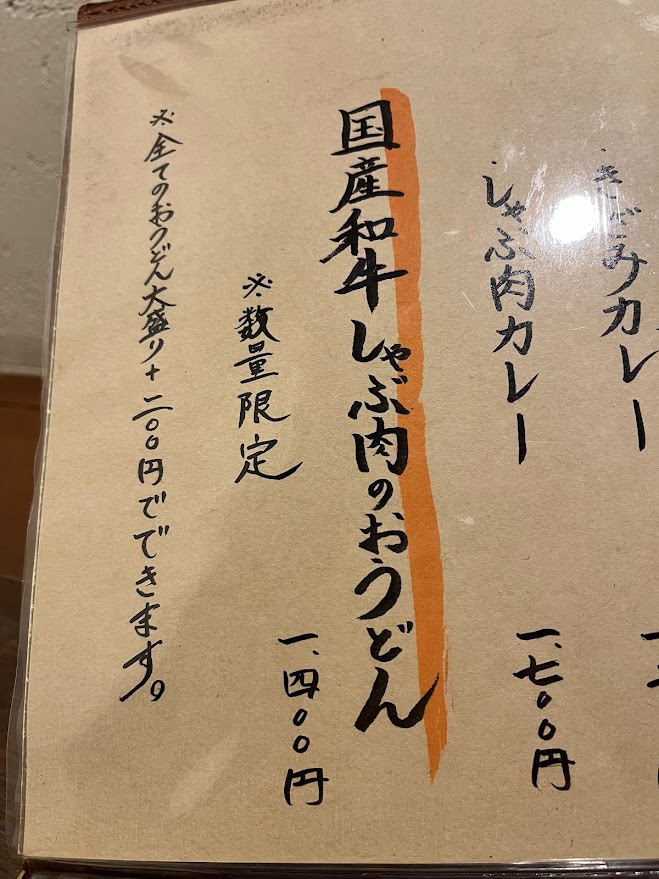 きざみカレー
しゃぶ肉カレー
一、七〇〇円
国産和牛しゃぶ肉のおうどん
一、四〇〇円
※数量限定
※全てのおうどん大盛り+二〇〇円でできます。